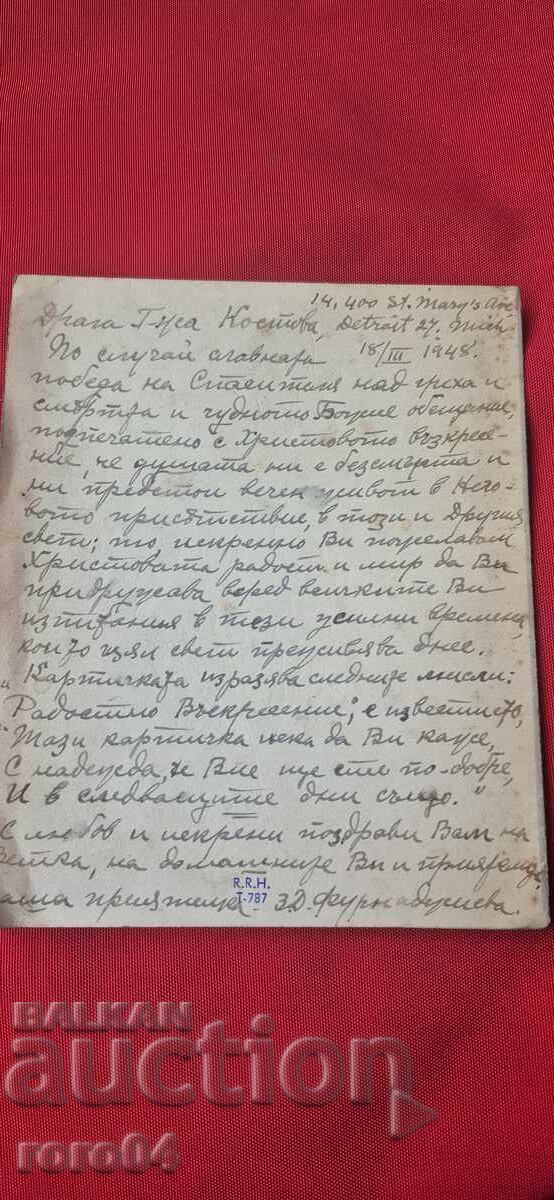 14,400 St. Mary's Ave
Драга Г-ца Костова, Detroit 27, Mich.
По случай славната 18/III 1948.
победа на Спасителя над греха и
смъртта и чудното Божие обещание,
подпечатено с Христовото възкресе-
ние, че душата ни е безсмъртна и
ни предстои вечен живот в Него-
вото присътствие, в този и другия
свет; то искренно Ви пожелавам
Христовата радост и мир да Ви
придружава всред всичките Ви
изпитания в тези усилни времена
които цял свет преживява днес.
Картичката изразява следните мисли:
„Радостно Възкресение", е известието,
"Тази картичка нека да Ви каже,
С надежда, че Вие ще сте по-добре,
И в следващите дни също."
С любов и искрени поздрави Вам на
на домашните Ви и приятели
приятелка З.Д. Фурнаджиева.
R.R.H.
T-787
BALKAN
auction
roro04